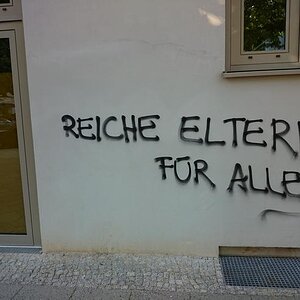 REICHE ELTERN
FÜR ALLE